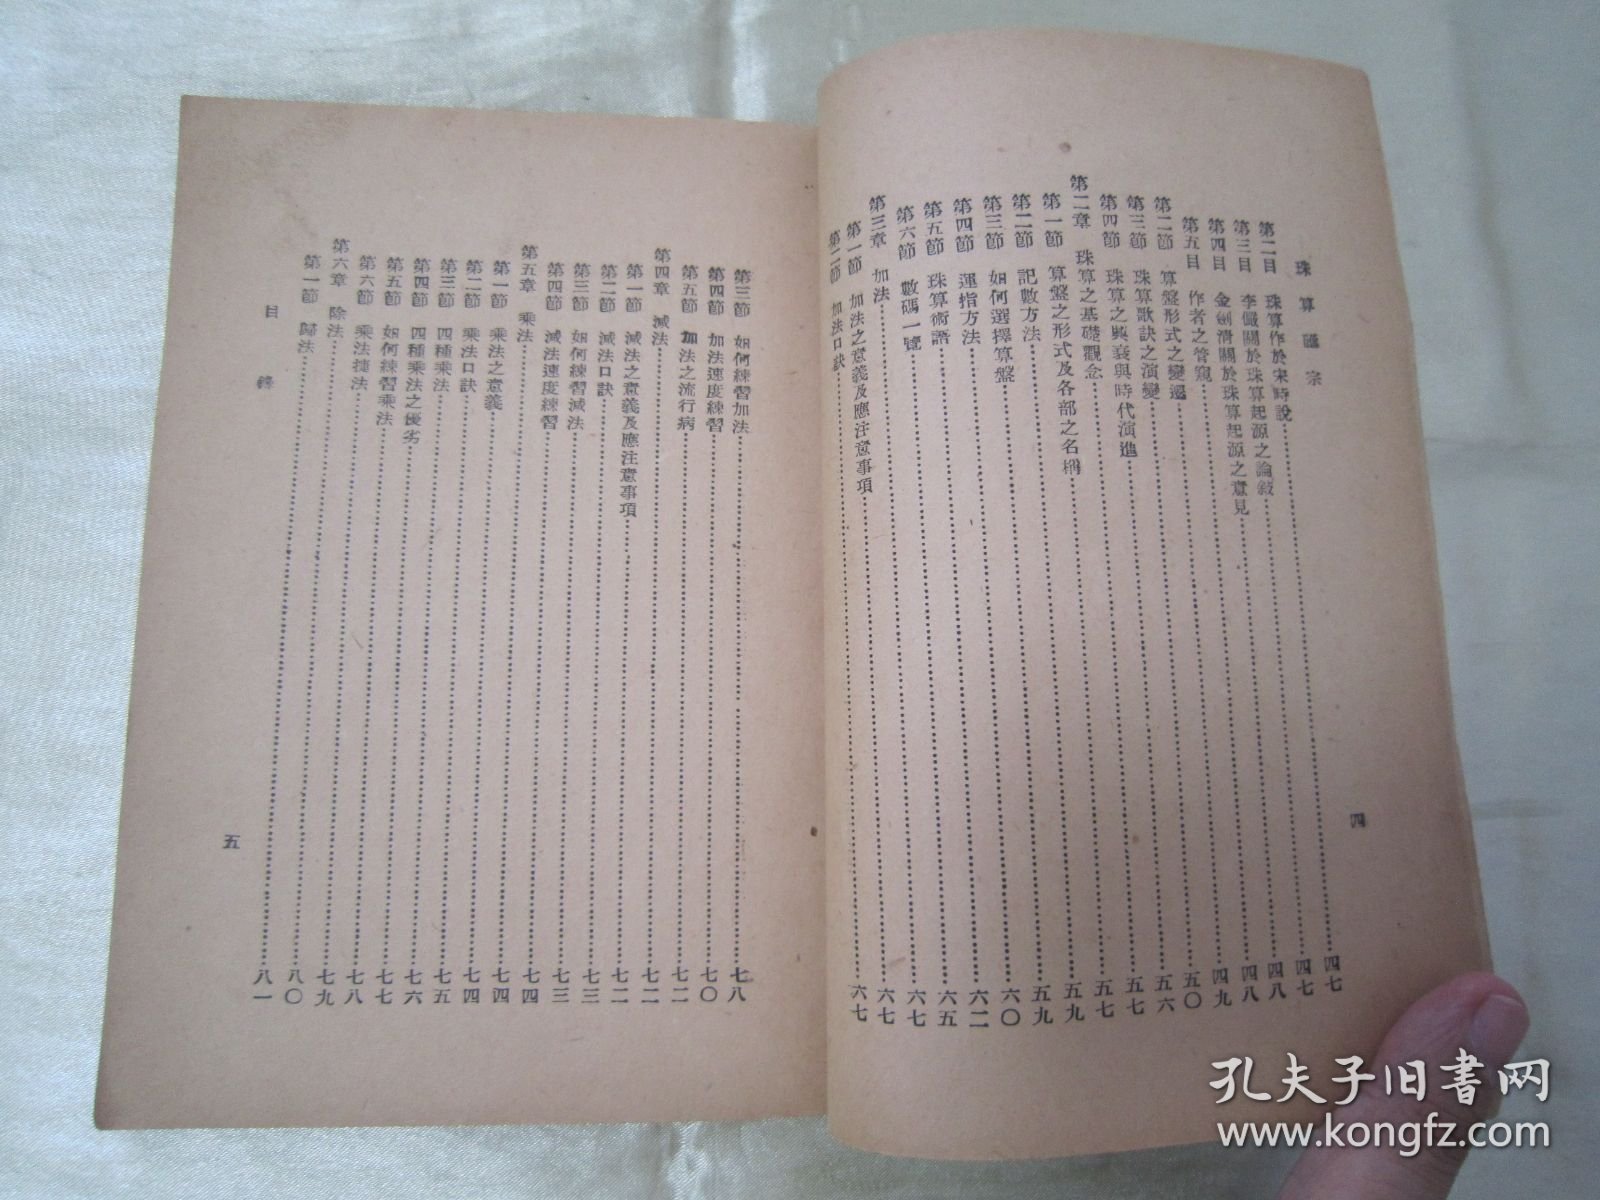 珠算匯宗
第二目 珠算作於宋時說……四七
第三目 李儼關於珠算起源之論敍……四七
第四目 金劍清關於珠算起源之意見……四八
第五目 作者之管窺……四八
第二節 算盤形式之變遷……四九
第三節 珠算歌訣之演變……五〇
第四節 珠算之興衰與時代演進……五六
第二章 珠算之基礎觀念……五七
第一節 算盤之形式及各部之名稱……五七
第二節 記數方法……五九
第三節 如何選擇算盤……五九
第四節 運指方法……六〇
第五節 珠算術語……六二
第六節 數碼一覽……六五
第三章 加法……六七
第一節 加法之意義及應注意事項……六七
第二節 加法口訣……六七
四
第三節 如何練習加法……七八
第四節 加法速度練習……七〇
第五節 加法之流行病……七二
第四章 減法……七二
第一節 減法之意義及應注意事項……七二
第二節 減法口訣……七三
第三節 如何練習減法……七三
第四節 減法速度練習……七四
第五章 乘法……七四
第一節 乘法之意義……七四
第二節 乘法口訣……七五
第三節 四種乘法……七六
第四節 四種乘法之優劣……七七
第五節 如何練習乘法……七八
第六節 乘法捷法……七九
第六章 除法……八〇
第一節 歸法……八一
目錄
五
孔夫子旧書网
www.kongfz.com